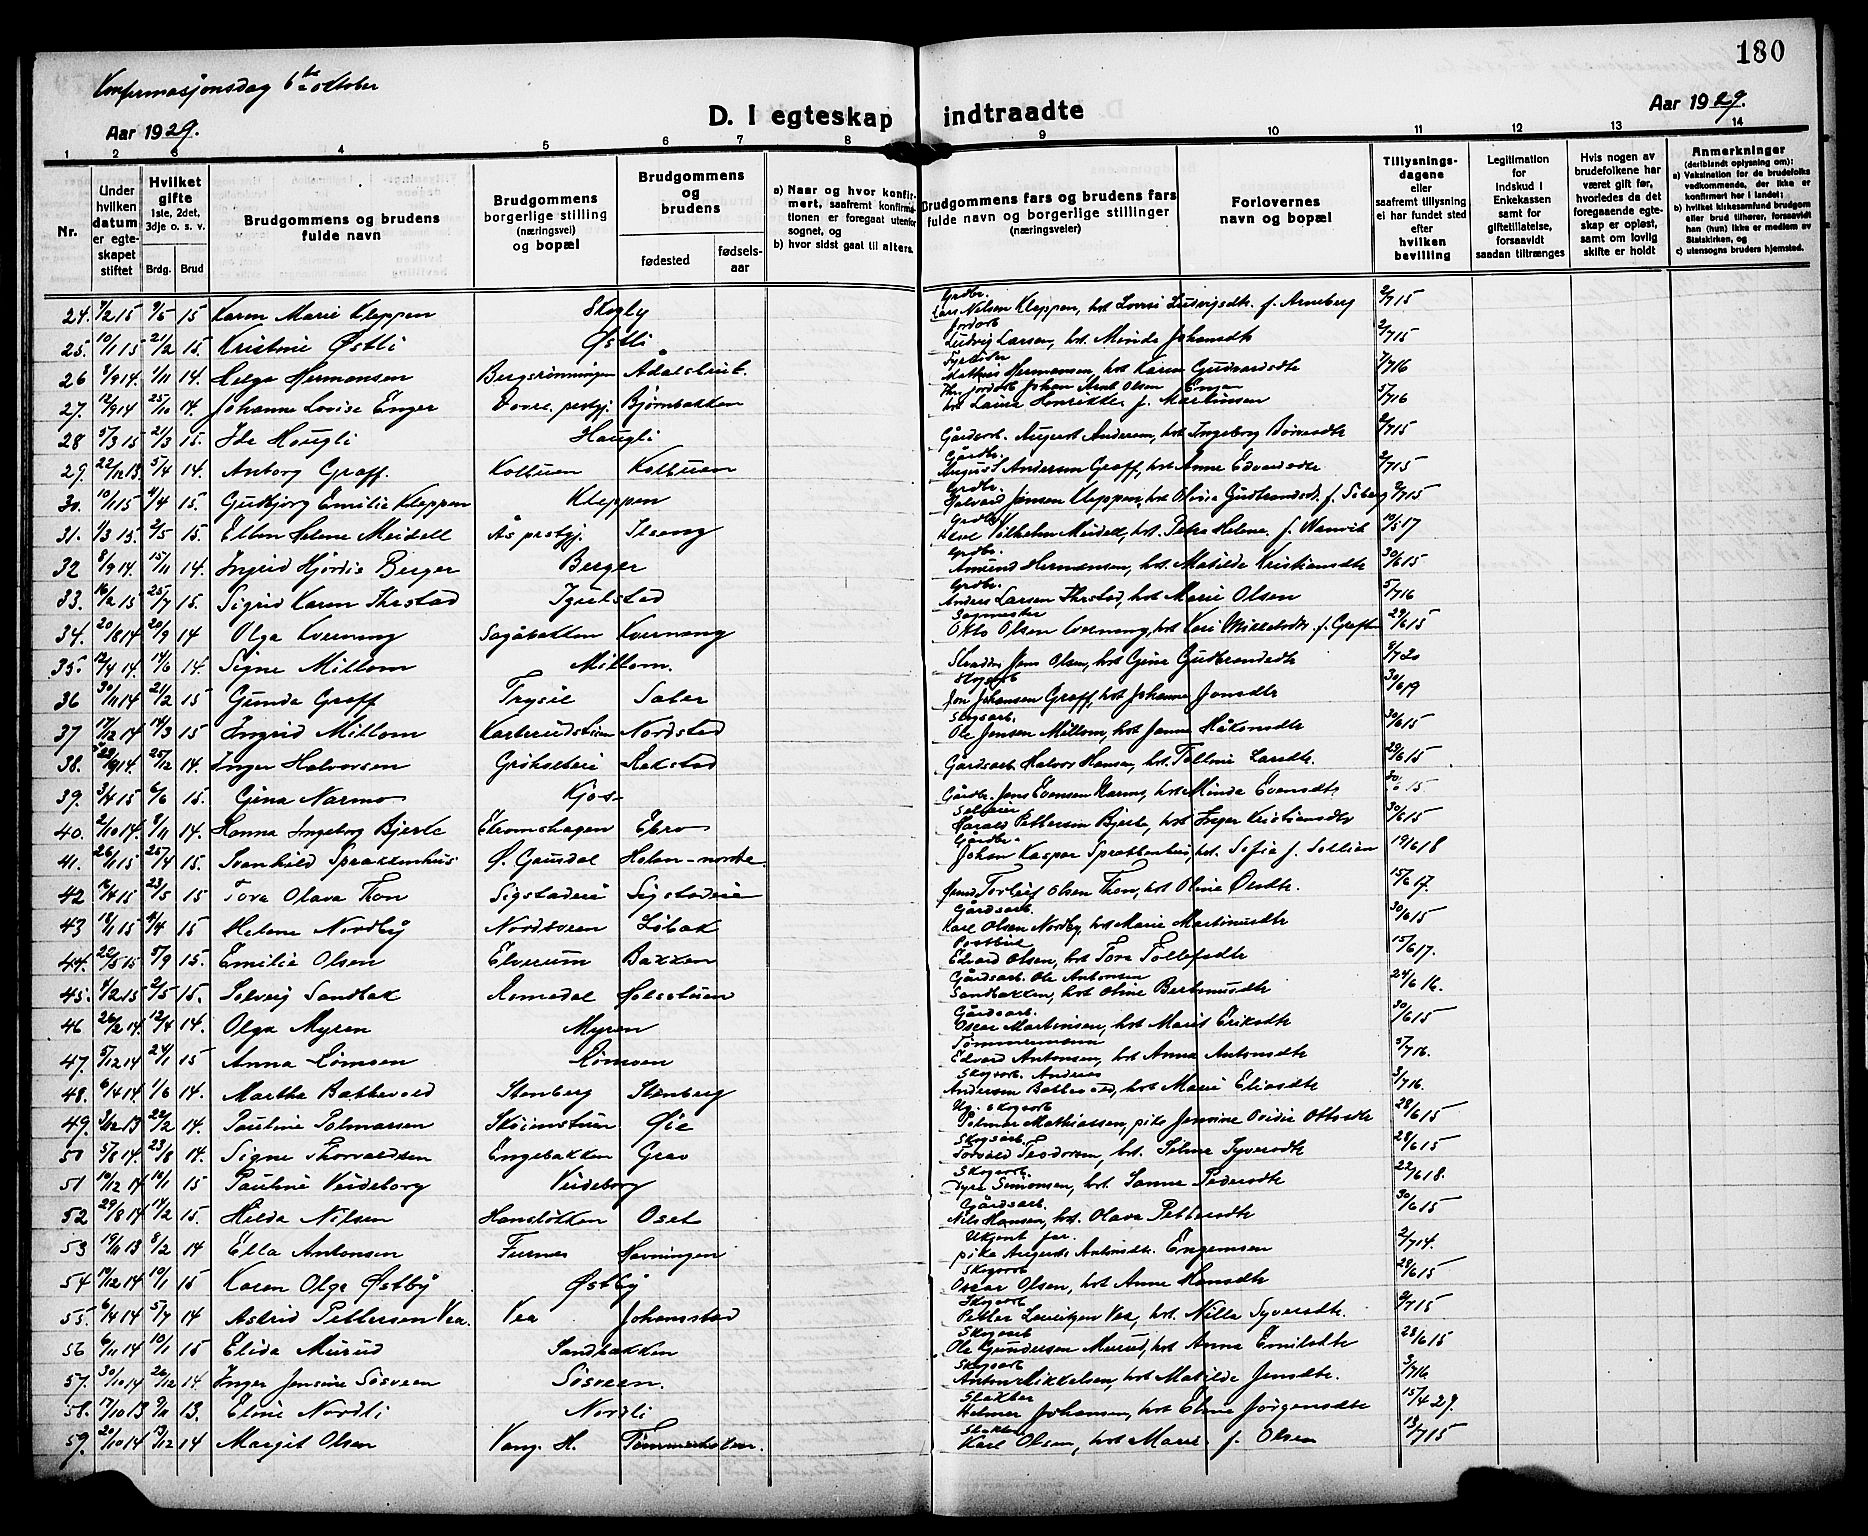 180
Konfirmasjonsdag 6te oktober
D. I egteskap indtraadte
Aar 1929.
Aar 1929.
1 2 3 4 5 6 7 8 9 10 11 12 13 14
Nr.
Under hvilken datum er egteskapet stiftet
Hvilket gifte 1ste, 2det, 3dje o. s. v.
Brdg. Brud
Brudgommens og brudens fulde navn
Brudgommens borgerlige stilling (næringsvei) og bopæl
Brudgommens og brudens
fødested
fødselsaar
a) Naar og hvor konfirmert, saafremt konfirmationen er foregaat utenfor sognet, og
b) hvor sidst gaat til alters.
Brudgommens fars og brudens fars fulde navn og borgerlige stillinger (næringsveier)
Forlovernes navn og bopæl
Tillysningsdagene eller saafremt tillysning ei har fundet sted efter hvilken bevilling
Legitimation for indskud i Enkekassen samt for giftetillatelse, forsaavidt saadan tiltrænges
Hvis nogen av brudefolkene har været gift før, hvorledes da det foregaaende egteskap er opløst, samt om lovlig skifte er holdt
Anmerkninger (deriblandt oplysning om):
a) Vaksination for de brudefolks vedkommende, der ikke er konfirmert her i landet;
b) hvilket kirkesamfund brudgom eller brud tilhører, forsaavidt han (hun) ikke er medlem av Statskirken, og
c) utensogns bruders hjemsted.
24. 7/2 15 9/5 15 Karen Marie Kleppen Skogly Grdbr. Lars Nilsen Kleppen, hst Lovise Ludvigsdtr. f. Arneberg 2/7 15
25. 10/1 15 21/2 15. Kristine Østli Østli Jordarb. Ludvig Larsen, hst. Minda Johansdtr 2/7 15
26 8/9 14. 1/11 14. Helga Hermansen Bergsrønningen Ådalsbruk. Fyrbøder Mathias Hermansen, hst Karen Gudvardsdtr 7/7 16
27. 12/9 14 25/10 14. Johanne Lovise Enger Dovre prestgj. Bjørnbakken Jordarb Johan Arnt Olsen Enger hst Laura Henrikke f. Martinsen 5/7 16
28 5/3 15 21/3 15. Ida Haugli Haugli Gårdsarb. August Andersen, hst Ingeborg 2/7 15
29. 22/12 13. 5/4 14. Anborg Graff. Koltuen Koltuen Gårdbr. August Andersen Graff, hst Anne Edvardsdtr 2/7 15
30. 10/1 15 4/4 15. Gudbjørg Emilie Kleppen Kleppen Grdbr. Halvard Jensen Kleppen, hst Olivia Gudbrandsd. f. Soberg 2/7 15
31. 1/3 15. 2/5 15. Ellen Helene Meidell Ås prestgj. Ilseng Grdbr. Vilhelm Meidell, hst. Petra Helene f. Wanvik 10/5 17
32 8/9 14. 15/11 14. Ingrid Hjørdis Berger Berger Grdbr. Amund Hermansen, hst Matilde Kristiansdtr 30/6 15
33. 16/2 15 25/7 15. Sigrid Karen Ihrstad Igulstad Grdbr. Anders Larsen Ihrstad, hst Marie Olsen 5/7 16
34. 20/8 14 20/9 14 Olga Kvernang Sagåbakken Kvernang Sagmester Otto Olsen Kvernang, hst Kari Mikkelsdtr f. Graften 29/6 15
35. 12/4 14. 14/6 14. Signe Millom Millom. Skrædder Jens Olsen, hst Gine Gudbrandsdtr 9/7 20
36 30/11 14 21/2 15 Gunda Graff Trysil Sater Skogsarb Jon Johansen Graff, hst Johanne Jonsdtr 30/6 19
37 17/12 14 14/3 15 Ingrid Millom Karterudstuen Nordstad Skogsarb. Ole Jensen Millom, hst Janna Håkonsdtr 30/6 15
38. 29/9 14 25/12 14. Inger Halvorsen Grøholteie Rekstad Gårdsarb. Halvor Hansen, hst. Tolline Larsdtr. 29/6 15
39. 3/4 15 6/6 15. Gina Narmo Kjos Gårdbr. Jens Evensen Narmo, hst Minda Evensdtr 30/6 15
40. 2/10 14. 8/11 14. Hanna Ingeborg Bjerke Ekromshagen Ebro Harald Pettersen Bjerke, hst Inger Kristiansdtr 30/6 15
41. 26/1 15 25/4 15. Svanhild Sprakkenhus Ø. Gausdal Holen-nordre. Gårdbr. Johan Kaspar Sprakkenhus, hst. Sofie f. Sollien 19/6 18
42 16/4 15 23/5 15 Tora Olava Thon Sigstadeie Sigstadeie Torleif Olsen Thon, hst Oline Olsdtr. 15/6 17.
43 18/1 15 4/4 15 Helene Nordby Nordsveen Løbak Gårdsarb. Karl Olsen Nordby, hst Marie Martinusdtr 30/6 15
44. 22/5 15 5/9 15. Emilie Olsen Elverum Bakken Postbud Edvard Olsen, hst Tora Tollefsdtr 15/6 17.
45. 4/2 15 2/5 15. Solveig Sandbak Romedal Holsetuen Gårdsarb. Ole Antonsen Sandbakken, hst Oline Berthinusdtr 24/6 16.
46 26/2 14. 12/4 14. Olga Myren Myren Gårdsarb. Oscar Martinsen, hst Marie Eriksdtr 30/6 15
47. 5/12 14 24/1 15 Anna Lømoen Lømoen Tømmermann Edvard Antonsen, hst Anna Antonsdtr 5/7 16.
48. 6/4 14 1/6 14. Martha Bakkevold Stenberg Stenberg Skogsarb. Andreas Andersen Bakkevold, hst Marie Eliasdtr 3/7 16.
49. 3/12 13 22/2 14. Pauline Palmarsen Skoienstuen Øie Ug. skogsarb Palmar Mathiassen, pike Jensine Ovidie Ottosdtr 28/6 15
50 5/6 14. 23/8 14. Signe Thorvaldsen Engebakken Grav Skogsarb. Torvald Teodorsen, hst. Selma Syversdtr 28/6 15
51 10/12 14 10/1 15 Pauline Veideborg Veideborg Skogsarb. Syver Simonsen, hst. Sanna Pedersdtr 22/6 18.
52 29/8 14 14/2 15. Hilda Nilsen Hansløkken Oset Gårdsarb. Nils Hansen, hst. Olava Pettersdtr 30/6 15
53 19/11 13 8/2 14 Ella Antonsen Furnes Havningen Ukjent far. pike Augusta Antonsdtr. Engemoen 2/7 14.
54 10/12 14 10/1 15 Karen Olga Østby Østby Skogsarb Oscar Olsen, hst Anne Hansdtr 28/6 15
55. 6/4 14 5/7 14 Astrid Pettersen Vea. Vea Johannstad Skogsarb Petter Lauritzen Vea, hst. Nilla Syversdtr. 9/7 15
56 6/11 14 10/1 15 Elida Murud Sandbakken Skogsarb Ole Gundersen Murud, hst Anna Emilsdtr 28/6 15
57. 30/10 14 26/12 14. Inger Jensine Søsveen Søsveen. Skogsarb Anton Mikkelsen, hst Matilde Jensdtr. 3/7 16.
58. 17/10 13 9/11 13. Eline Nordli Nordli Slakter Helmer Johansen, hst Eline Jørgensdtr 15/4 29.
59. 20/10 14 13/12 14 Margit Olsen Vang. H. Slakter Karl Olsen, hst Marie f. Olsen 13/7 15